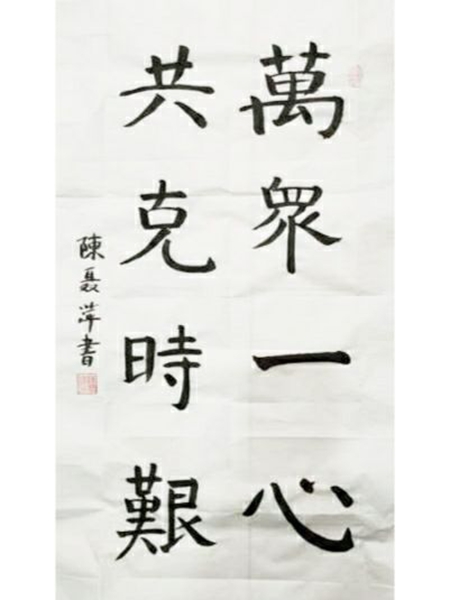 萬眾一心
共克時艱
陳聶萍書